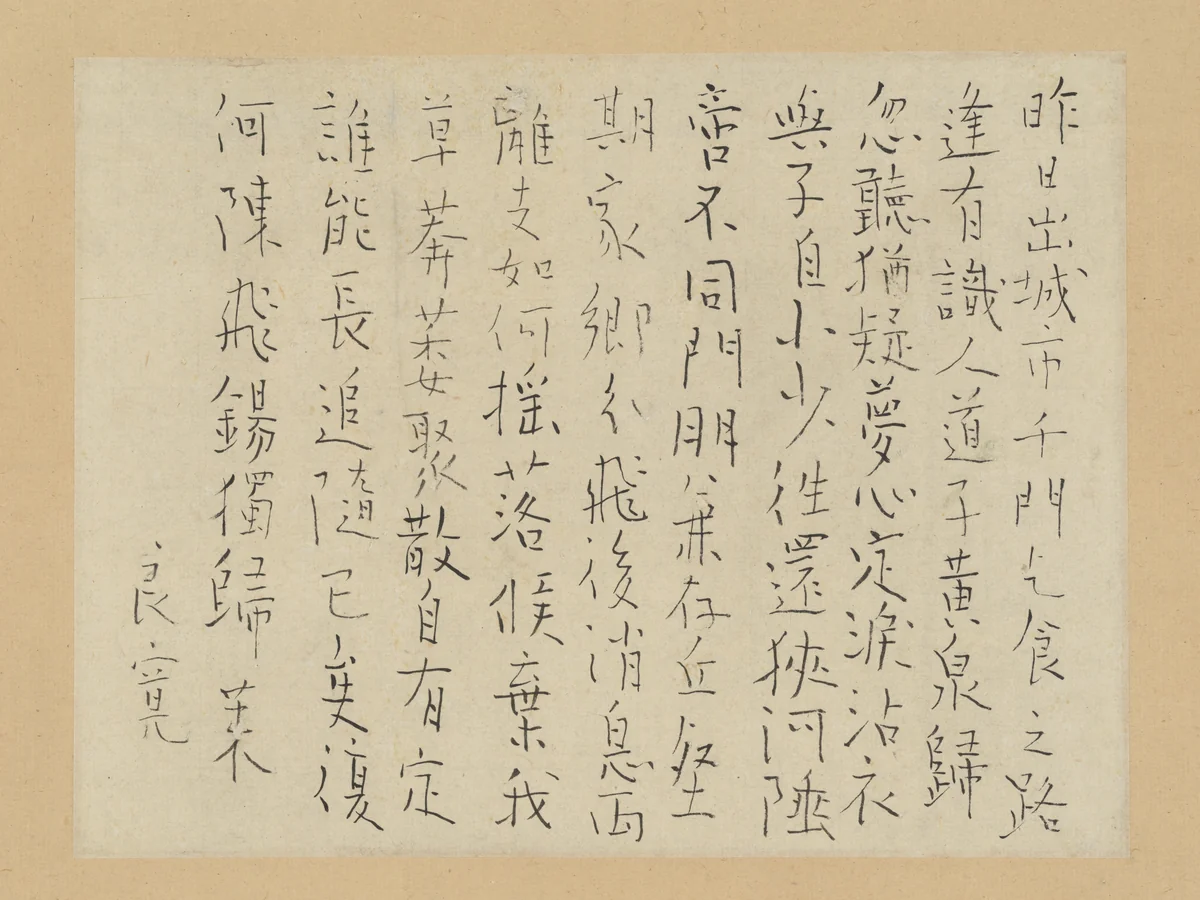 昨日出城市千門乞食之路
逢有識人道子黄泉歸
忽聽猶疑夢心定淚沾衣
與子自小少徃還狹河陲
啻不同門朋兼存丘壑
期家鄉分飛後消息両
離支如何搖落候棄我
草莽萋聚散自有定
誰能長追隨已矣復
何陳飛錫獨歸来
良寛